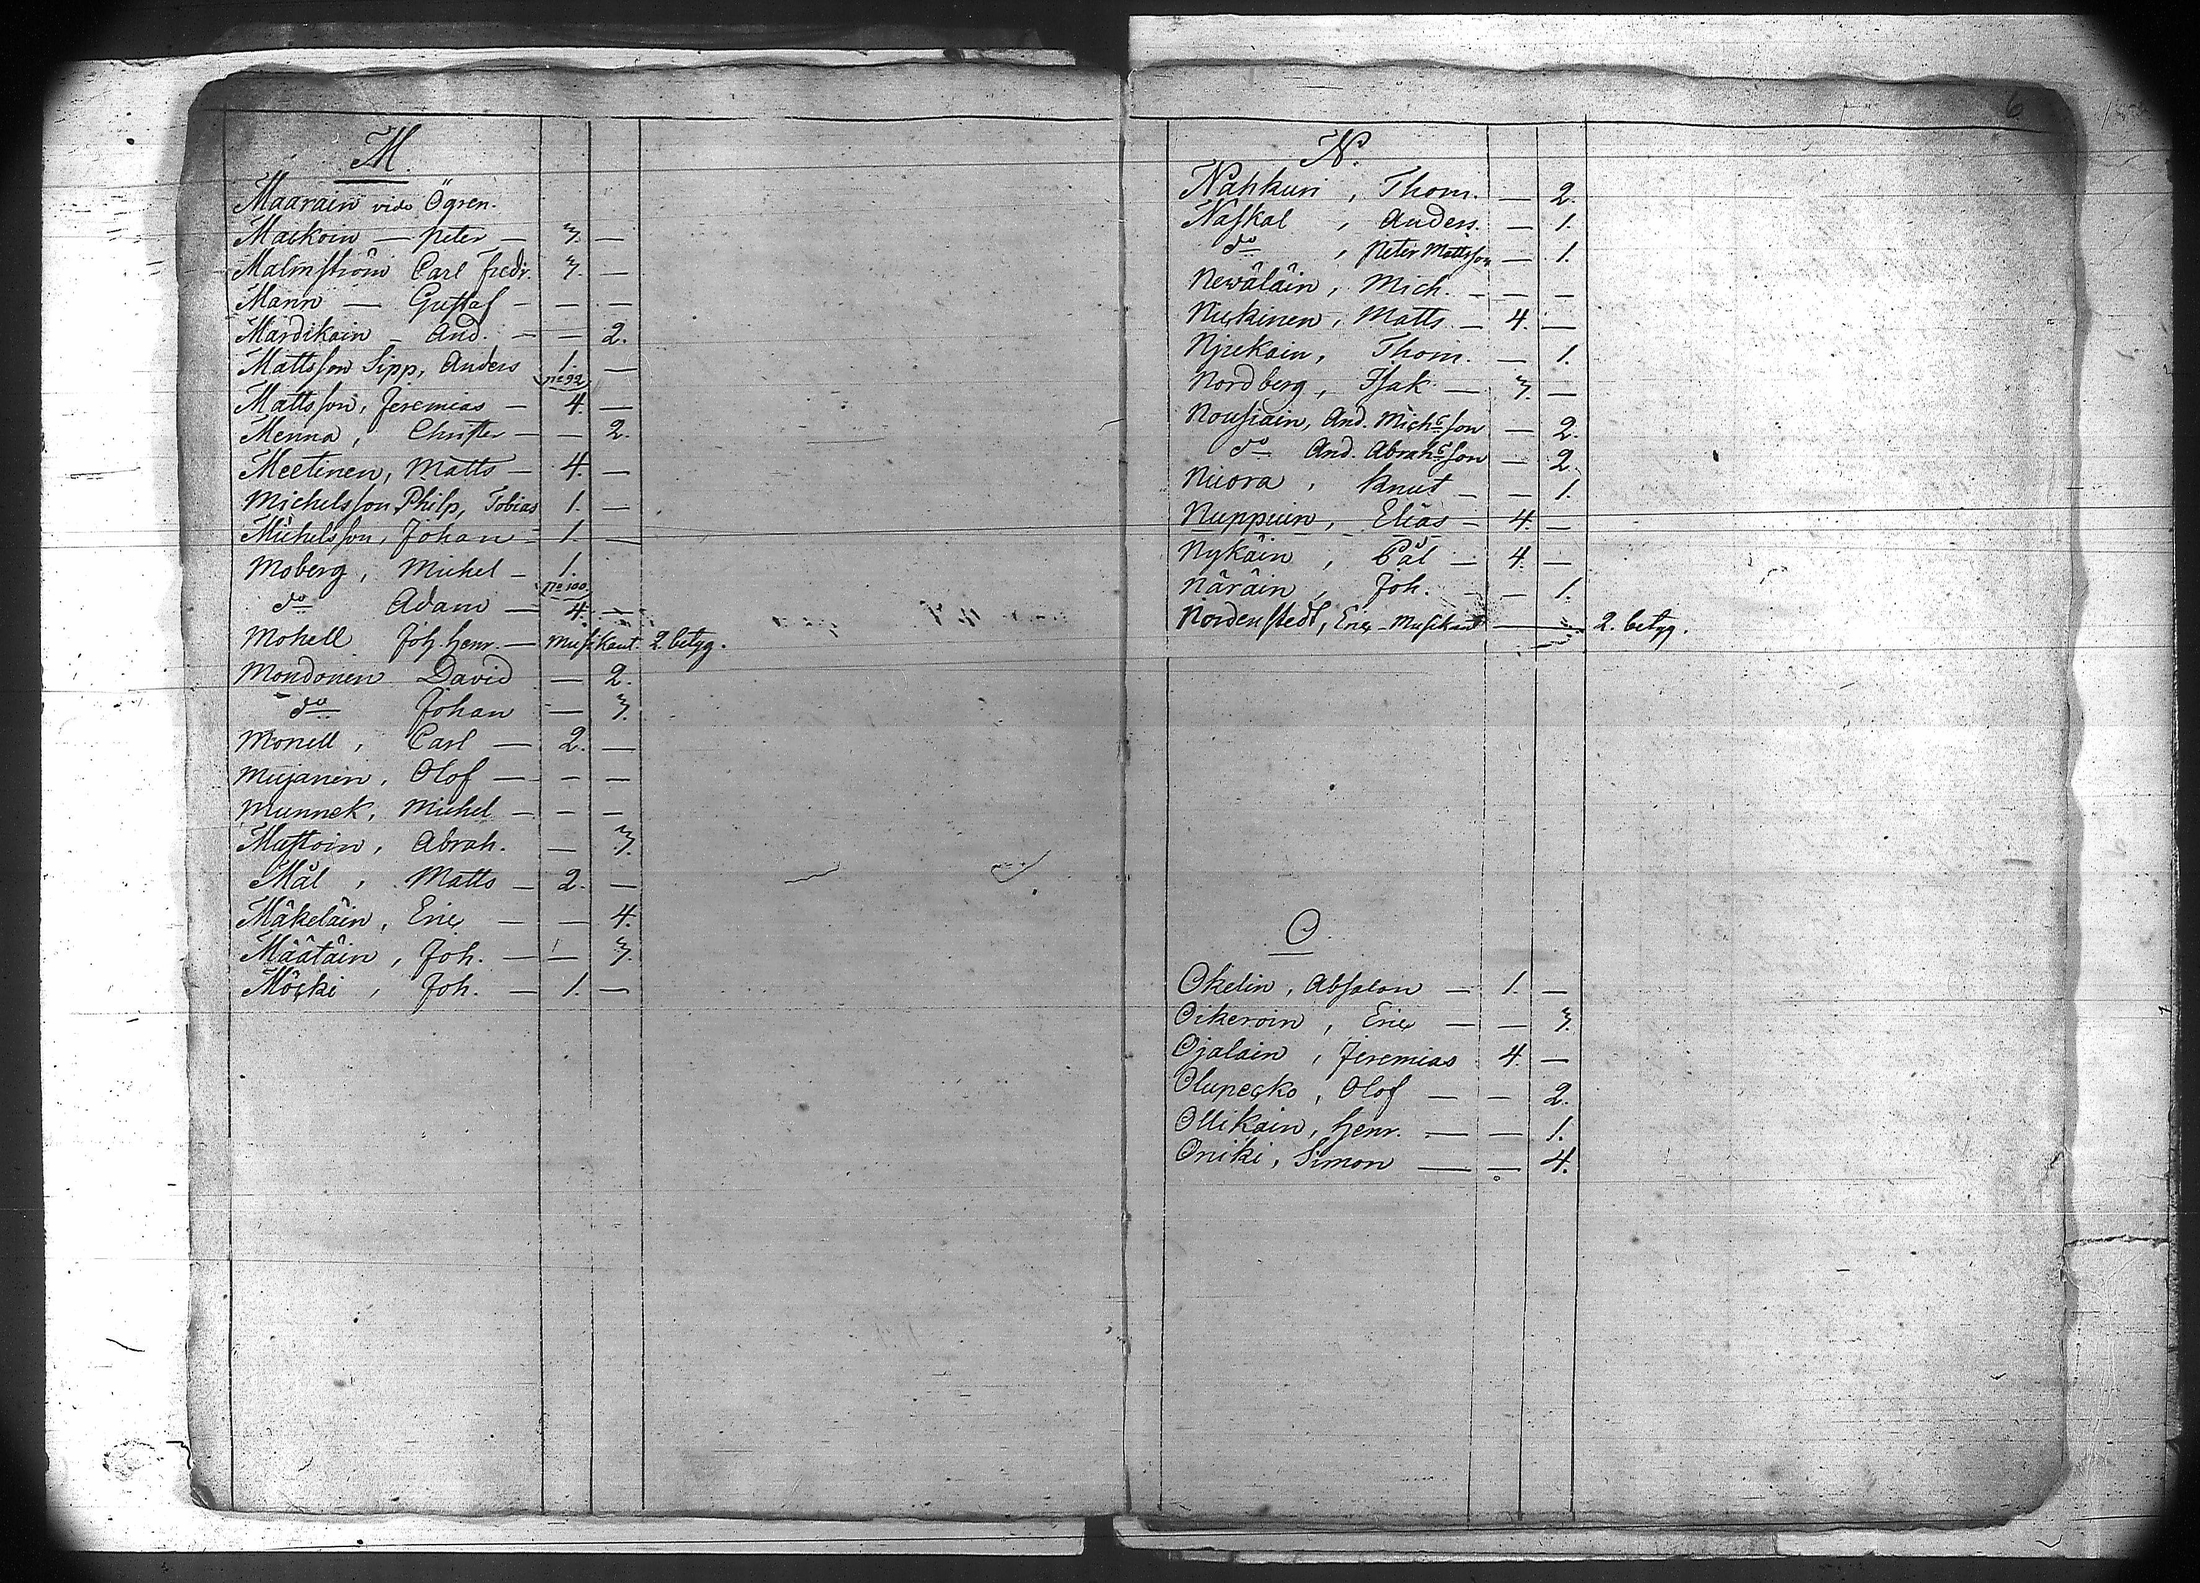 M.
Maarain vide Ögren.
Mackoin — Peter — 3. —
Malmström Carl Fredr. 3. —
Mann — Gustaf — — —
Mardikain — And. — — 2.
Mattsson Sipp, Anders 1. —
No 92
Mattsson, Jeremias — 4. —
Menna, Christer — — 2.
Meetinen, Matts — 4. —
Michelsson Philp, Tobias 1. —
Michelsson, Johan — 1. —
Moberg, Michel — 1.
No 100.
do Adam — 4. —
Mohell Joh. Henr. — Musikant. 2. betyg.
Mondonen David — 2.
do Johan — 3.
Monell, Carl — 2. —
Mujanen, Olof — — —
Munnek, Michel — — —
Mustoin, Abrah. — 3.
Mål, Matts — 2. —
Mäkeläin, Eric — — 4.
Määtäin, Joh. — — 3.
Möcki, Joh. — 1. —
6
N.
Nahkuri, Thom. — 2.
Naskal, Anders. — 1.
do, Peter Mattsson — 1.
Newäläin, Mich. — — —
Nickinen, Matts — 4. —
Njrekain, Thom. — 1.
Nordberg, Isak — 3. —
Nousiain, And. Michsson — 2.
do And. Abrahsson — 2.
Nuora, Knut — — 1.
Nuppuin, Elias — 4. —
Nykäin, Pål — 4. —
Näräin, Joh. — — 1.
Nordenstedt, Eric Musikant — 2. betyg.
O.
Okelin, Absalon — 1. —
Oikeroin, Eric — — 3.
Ojalain, Jeremias 4. —
Olupecko, Olof — — 2.
Ollikain, Henr. — — 1.
Oniki, Simon — — 4.